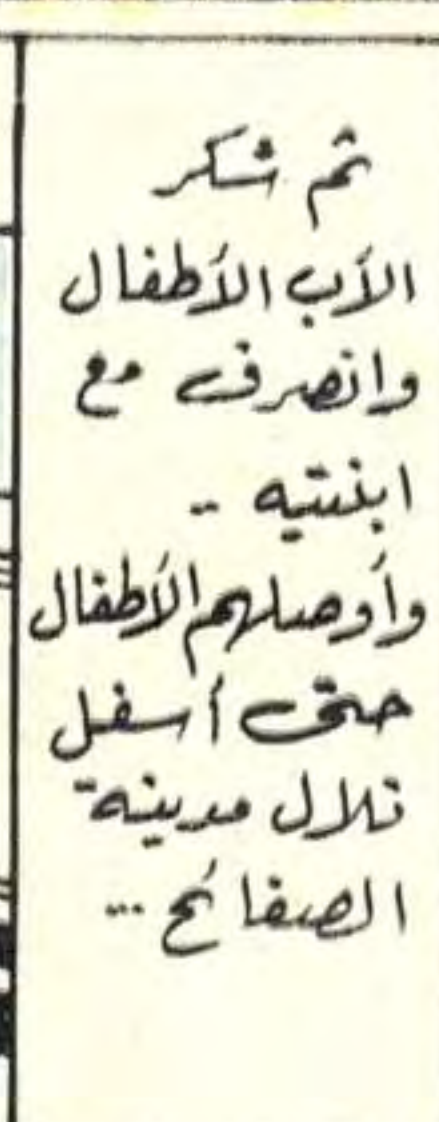 ثم شكر
الأب الأطفال
وانصرف مع
ابنتيه ..
وأوصلهم الأطفال
حتى أسفل
تلال مدينة
الصفائح ...